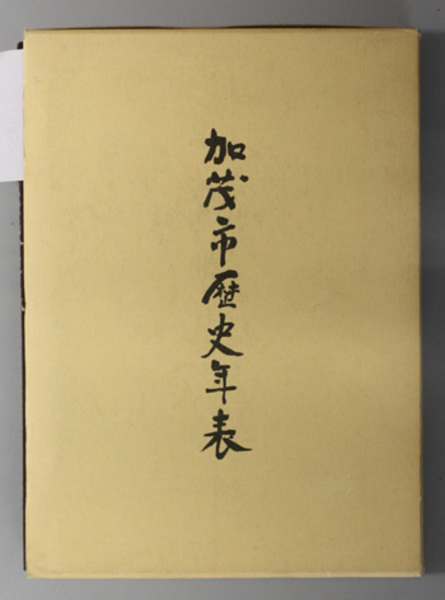 加茂市歴史年表